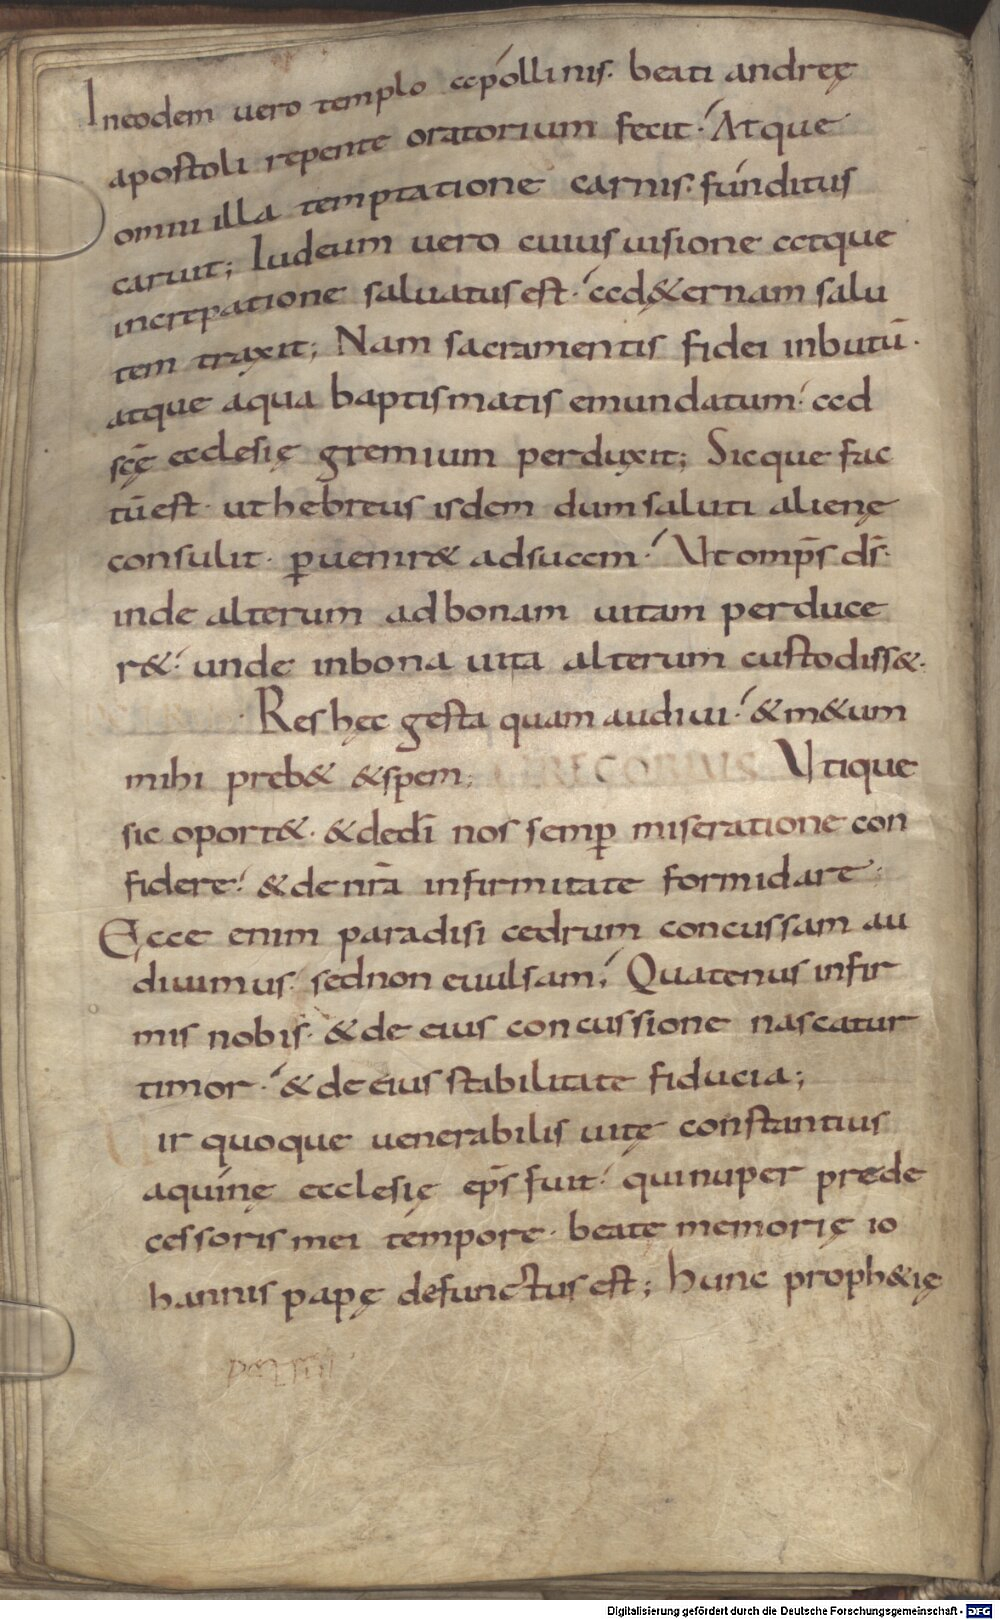 Ineodem uero templo apóllinis. beati andreę
apostoli repente oratorium fecit. Atque
omni illa temptatione carnis. fúnditus
caruit; Iudeum uero cuius uisione atque
increpatione saluatus est. ad&ernam salu
tem traxit; Nam sacramentis fidei inbutū.
atque aqua baptismatis emundatum. ad
scē ecclesię gremium perduxit; Sicque fac
tū est. ut hebreus isdem dum saluti alienę
consulit. ꝑuenir& adsuam. Vt omp̄s ds̄.
inde alterum adbonam uitam perduce
r&. unde inbona uita alterum custodiss&.
Res hęc gesta quam audiui. &m&um
mihi preb& &spem; GREGORIUS Vtique
sic oport&. &dedī nos semꝑ miseratione con
fidere. &denr̄a infirmitate formidare.
Ecce enim paradisi cedrum concussam au
diuimus. sednon euulsam; Quatenus infir
mis nobis. &de eius concussione nascatur
timor. &deeius stabilitate fiducia;
ir quoque uenerabilis uitę constantius
aquinę ecclesię ep̄s fuit. quinuper prede
cessoris mei tempore. beate memorię io
hannis papę defunctus est; hunc proph&ię
Digitalisierung gefördert durch die Deutsche Forschungsgemeinschaft - DFG